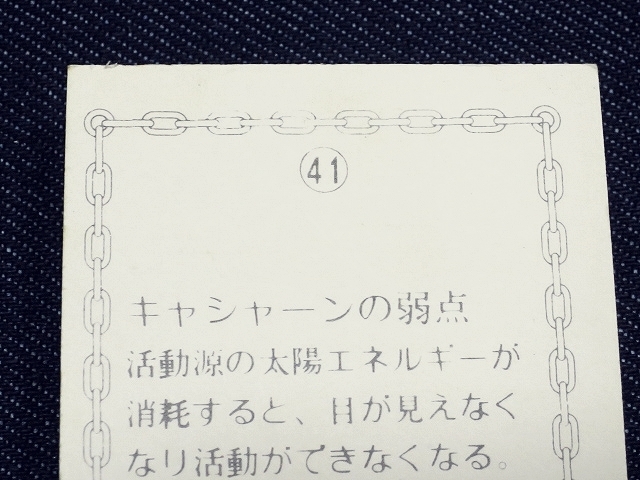 41
キャシャーンの弱点
活動源の太陽エネルギーが
消耗すると、目が見えなく
なり活動ができなくなる。